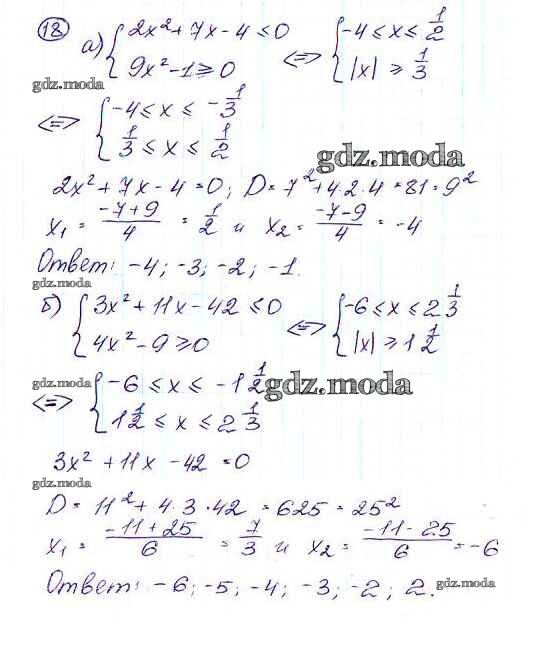 18
а) { 2x² + 7x - 4 ≤ 0 <=> { -4 ≤ x ≤ 1/2
9x² - 1 ≥ 0 |x| ≥ 1/3
gdz.moda
<=> { -4 ≤ x ≤ -1/3
1/3 ≤ x ≤ 1/2
gdz.moda
2x² + 7x - 4 = 0; D = 7² + 4.2.4 = 81 = 9²
x₁ = (-7+9)/4 = 1/2 и x₂ = (-7-9)/4 = -4
Ответ: -4; -3; -2; -1.
gdz.moda
б) { 3x² + 11x - 42 ≤ 0 <=> { -6 ≤ x ≤ 2 1/3
4x² - 9 ≥ 0 |x| ≥ 1 1/2
gdz.moda
<=> { -6 ≤ x ≤ -1 1/2
gdz.moda
1 1/2 ≤ x ≤ 2 1/3
3x² + 11x - 42 = 0
gdz.moda
D = 11² + 4.3.42 = 625 = 25²
x₁ = (-11+25)/6 = 7/3 и x₂ = (-11-25)/6 = -6
Ответ: -6; -5; -4; -3; -2; 2.
gdz.moda